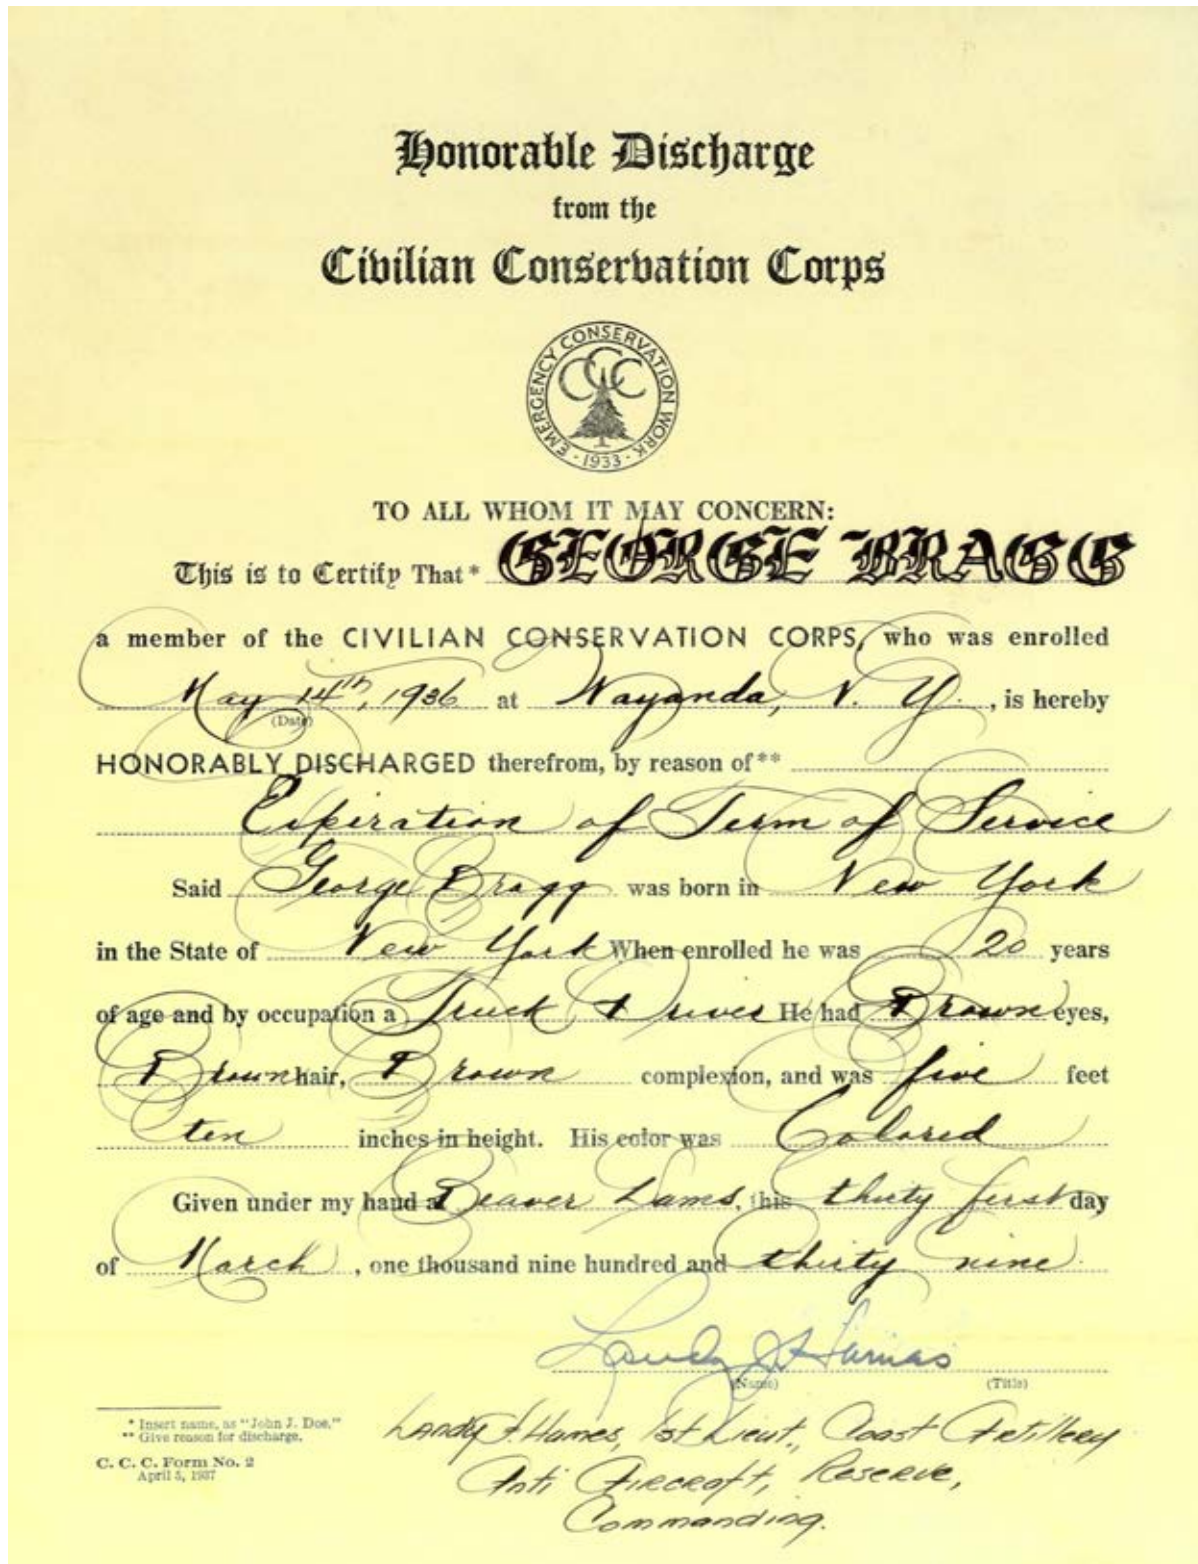 Honorable Discharge
from the
Civilian Conservation Corps
EMERGENCY CONSERVATION WORK
CCC
· 1933 ·
TO ALL WHOM IT MAY CONCERN:
This is to Certify That* GEORGE BRAGG
a member of the CIVILIAN CONSERVATION CORPS, who was enrolled
May 14th, 1936 at Wayanda, N. Y., is hereby
(Date)
HONORABLY DISCHARGED therefrom, by reason of**
Expiration of Term of Service
Said George Bragg was born in New York
in the State of New York When enrolled he was 20 years
of age and by occupation a Truck Driver He had Brown eyes,
Brown hair, Brown complexion, and was five feet
ten inches in height. His color was Colored
Given under my hand at Beaver Dams, this thirty first day
of March, one thousand nine hundred and thirty nine.
Landy
(Name) (Title)
Landy F. Hames, 1st Lieut., Coast Artillery
Anti Aircraft, Reserve,
Commanding.
* Insert name, as "John J. Doe."
** Give reason for discharge.
C. C. C. Form No. 2
April 5, 1937